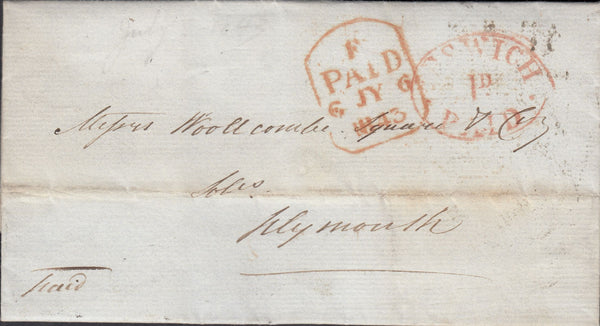 July
F
PAID
G JY G
1843
IPSWICH
1D
PAID
Messrs Woollcombe Square &
Solrs
Plymouth
paid